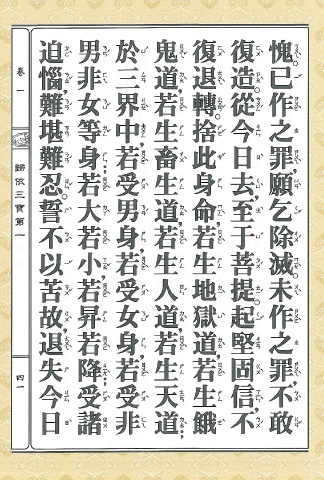 愧。已作之罪，願乞除滅。未作之罪，不敢
復造。從今日去，至于菩提，起堅固信，不
復退轉。捨此身命，若生地獄道，若生餓
鬼道，若生畜生道，若生人道，若生天道，
於三界中，若受男身，若受女身，若受非
男非女等身，若大若小，若昇若降，受諸
迫惱，難堪難忍。誓不以苦故，退失今日
卷一
歸依三寶第一
四一